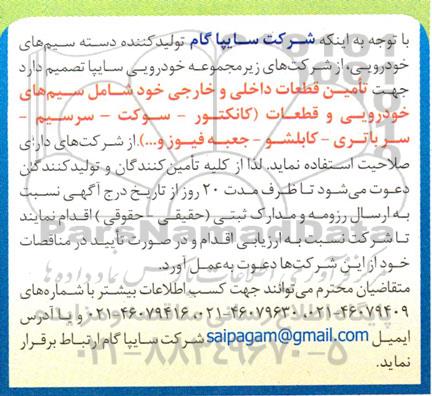 با توجه به اینکه شرکت سایپا گام تولیدکننده دسته سیم‌های
خودرویی، از شرکت‌های زیرمجموعه خودرویی سایپا تصمیم دارد
جهت تأمین قطعات داخلی و خارجی خود شامل سیم‌های
خودرویی و قطعات (کانکتور - سوکت - سرسیم -
سر باتری - کابلشو - جعبه فیوز و...)، از شرکت‌های دارای
صلاحیت استفاده نماید. لذا از کلیه تأمین‌کنندگان و تولیدکنندگان
دعوت می‌شود تا ظرف مدت ۲۰ روز از تاریخ درج آگهی نسبت
به ارسال رزومه و مدارک ثبتی (حقیقی - حقوقی) اقدام نمایند
تا شرکت نسبت به ارزیابی اقدام و در صورت تأیید در مناقصات
خود از این شرکت‌ها دعوت به‌عمل آورد.
متقاضیان محترم می‌توانند جهت کسب اطلاعات بیشتر با شماره‌های
۰۲۱-۴۶۰۷۹۴۰۹، ۰۲۱-۴۶۰۷۹۶۳۰، ۰۲۱-۴۶۰۷۹۴۱۶ و یا آدرس
ایمیل saipagam@gmail.com شرکت سایپا گام ارتباط برقرار
نماید.
ParsNamadData
۰۲۱-۸۸۳۴۹۶۷۰-۵